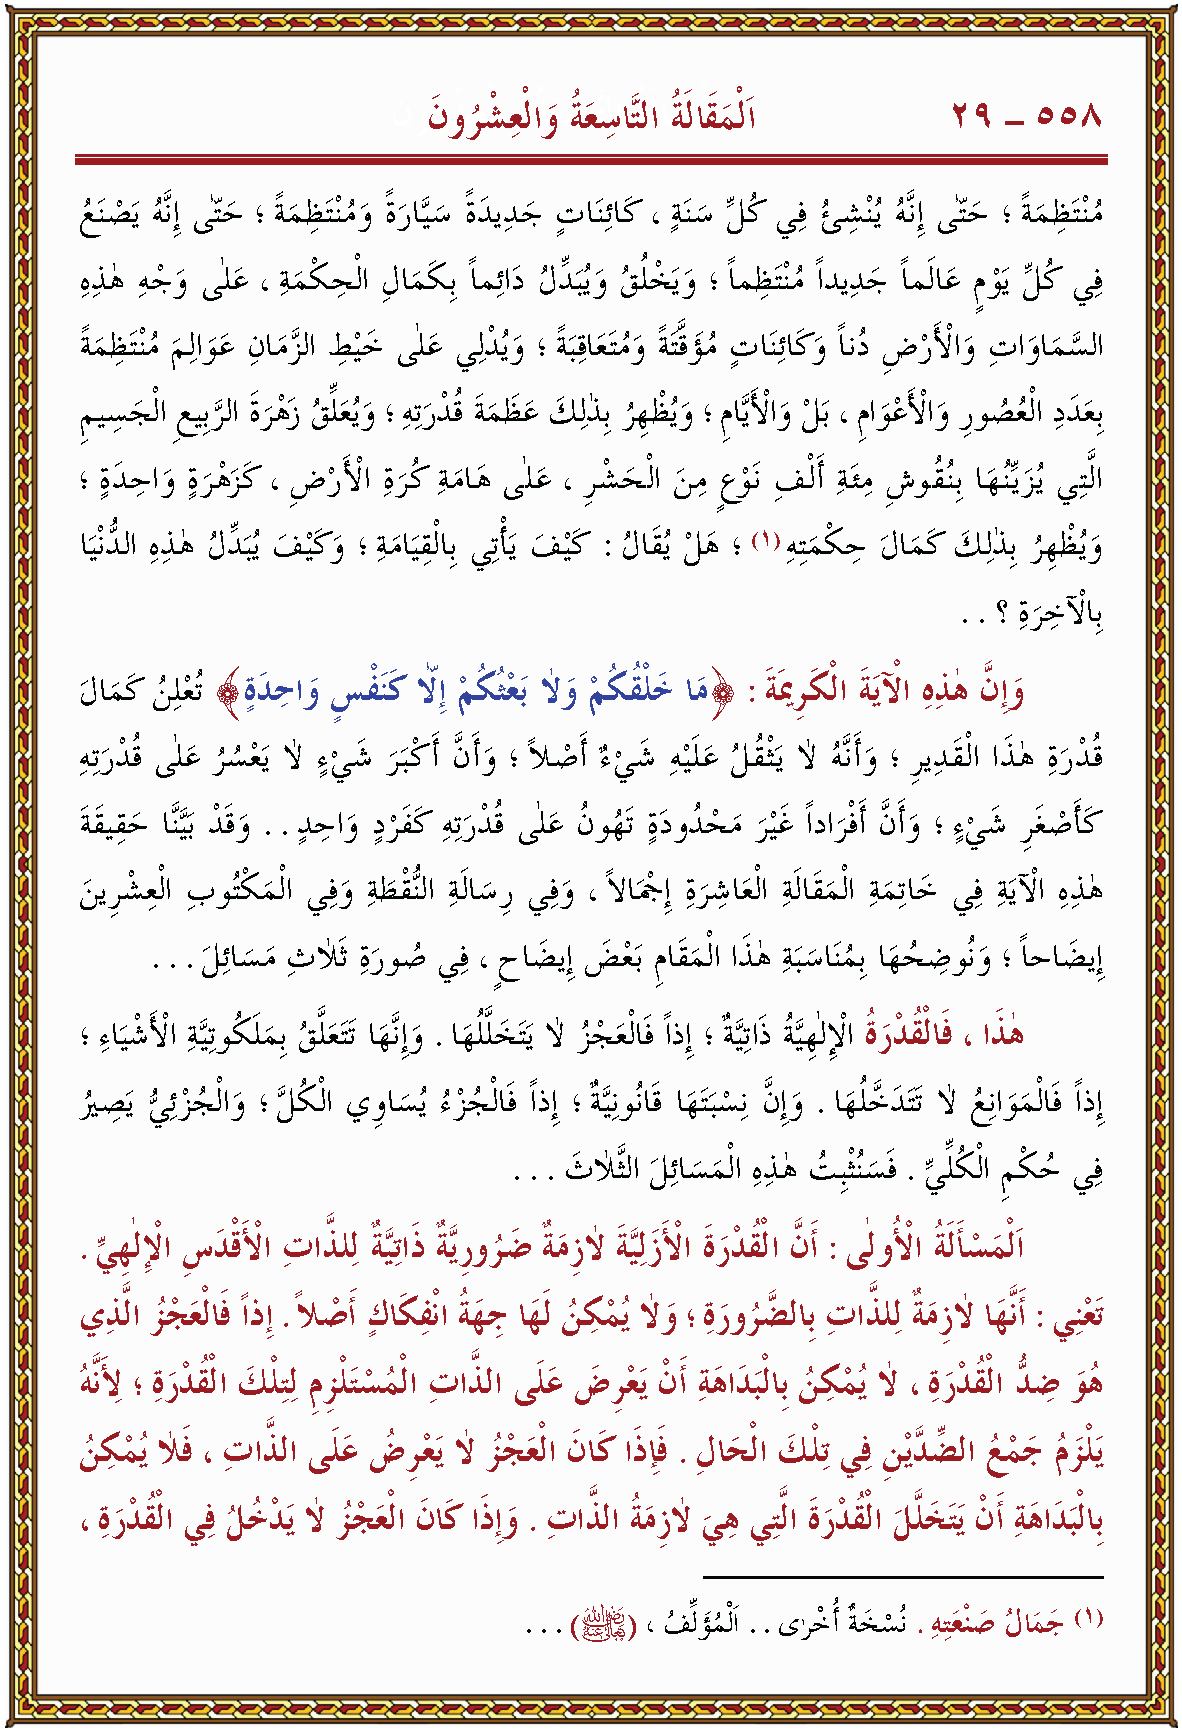 ٥٥٨ ـ ٢٩ اَلْمَقَالَةُ التَّاسِعَةُ وَالْعِشْرُونَ
مُنْتَظِمَةً ؛ حَتّٰى إِنَّهُ يُنْشِئُ فِي كُلِّ سَنَةٍ ، كَائِنَاتٍ جَدِيدَةً سَيَّارَةً وَمُنْتَظِمَةً ؛ حَتّٰى إِنَّهُ يَصْنَعُ
فِي كُلِّ يَوْمٍ عَالَماً جَدِيداً مُنْتَظِماً ؛ وَيَخْلُقُ وَيُبَدِّلُ دَائِماً بِكَمَالِ الْحِكْمَةِ ، عَلٰى وَجْهِ هٰذِهِ
السَّمَاوَاتِ وَالْأَرْضِ دُناً وَكَائِنَاتٍ مُؤَقَّتَةً وَمُتَعَاقِبَةً ؛ وَيُدْلِي عَلٰى خَيْطِ الزَّمَانِ عَوَالِمَ مُنْتَظِمَةً
بِعَدَدِ الْعُصُورِ وَالْأَعْوَامِ ، بَلْ وَالْأَيَّامِ ؛ وَيُظْهِرُ بِذٰلِكَ عَظَمَةَ قُدْرَتِهِ ؛ وَيُعَلِّقُ زَهْرَةَ الرَّبِيعِ الْجَسِيمِ
الَّتِي يُزَيِّنُهَا بِنُقُوشِ مِئَةِ أَلْفِ نَوْعٍ مِنَ الْحَشْرِ ، عَلٰى هَامَةِ كُرَةِ الْأَرْضِ ، كَزَهْرَةٍ وَاحِدَةٍ ؛
وَيُظْهِرُ بِذٰلِكَ كَمَالَ حِكْمَتِهِ (١) ؛ هَلْ يُقَالُ : كَيْفَ يَأْتِي بِالْقِيَامَةِ ؛ وَكَيْفَ يُبَدِّلُ هٰذِهِ الدُّنْيَا
بِالْآخِرَةِ ؟ . .
وَإِنَّ هٰذِهِ الْآيَةَ الْكَرِيمَةَ : ﴿مَا خَلْقُكُمْ وَلاٰ بَعْثُكُمْ إِلاّٰ كَنَفْسٍ وَاحِدَةٍ﴾ تُعْلِنُ كَمَالَ
قُدْرَةِ هٰذَا الْقَدِيرِ ؛ وَأَنَّهُ لاٰ يَثْقُلُ عَلَيْهِ شَيْءٌ أَصْلاً ؛ وَأَنَّ أَكْبَرَ شَيْءٍ لاٰ يَعْسُرُ عَلٰى قُدْرَتِهِ
كَأَصْغَرِ شَيْءٍ ؛ وَأَنَّ أَفْرَاداً غَيْرَ مَحْدُودَةٍ تَهُونُ عَلٰى قُدْرَتِهِ كَفَرْدٍ وَاحِدٍ . . وَقَدْ بَيَّنَّا حَقِيقَةَ
هٰذِهِ الْآيَةِ فِي خَاتِمَةِ الْمَقَالَةِ الْعَاشِرَةِ إِجْمَالاً ، وَفِي رِسَالَةِ النُّقْطَةِ وَفِي الْمَكْتُوبِ الْعِشْرِينَ
إِيضَاحاً ؛ وَنُوضِحُهَا بِمُنَاسَبَةِ هٰذَا الْمَقَامِ بَعْضَ إِيضَاحٍ ، فِي صُورَةِ ثَلاٰثِ مَسَائِلَ . . .
هٰذَا ، فَالْقُدْرَةُ الْإِلٰهِيَّةُ ذَاتِيَّةٌ ؛ إِذاً فَالْعَجْزُ لاٰ يَتَخَلَّلُهَا . وَإِنَّهَا تَتَعَلَّقُ بِمَلَكُوتِيَّةِ الْأَشْيَاءِ ؛
إِذاً فَالْمَوَانِعُ لاٰ تَتَدَخَّلُهَا . وَإِنَّ نِسْبَتَهَا قَانُونِيَّةٌ ؛ إِذاً فَالْجُزْءُ يُسَاوِي الْكُلَّ ؛ وَالْجُزْئِيُّ يَصِيرُ
فِي حُكْمِ الْكُلِّيِّ . فَسَنُثْبِتُ هٰذِهِ الْمَسَائِلَ الثَّلاٰثَ . . .
اَلْمَسْأَلَةُ الْأُولٰى : أَنَّ الْقُدْرَةَ الْأَزَلِيَّةَ لاٰزِمَةٌ ضَرُورِيَّةٌ ذَاتِيَّةٌ لِلذَّاتِ الْأَقْدَسِ الْإِلٰهِيِّ .
تَعْنِي : أَنَّهَا لاٰزِمَةٌ لِلذَّاتِ بِالضَّرُورَةِ ؛ وَلاٰ يُمْكِنُ لَهَا جِهَةُ انْفِكَاكٍ أَصْلاً . إِذاً فَالْعَجْزُ الَّذِي
هُوَ ضِدُّ الْقُدْرَةِ ، لاٰ يُمْكِنُ بِالْبَدَاهَةِ أَنْ يَعْرِضَ عَلَى الذَّاتِ الْمُسْتَلْزِمِ لِتِلْكَ الْقُدْرَةِ ؛ لِأَنَّهُ
يَلْزَمُ جَمْعُ الضِّدَّيْنِ فِي تِلْكَ الْحَالِ . فَإِذَا كَانَ الْعَجْزُ لاٰ يَعْرِضُ عَلَى الذَّاتِ ، فَلاٰ يُمْكِنُ
بِالْبَدَاهَةِ أَنْ يَتَخَلَّلَ الْقُدْرَةَ الَّتِي هِيَ لاٰزِمَةُ الذَّاتِ . وَإِذَا كَانَ الْعَجْزُ لاٰ يَدْخُلُ فِي الْقُدْرَةِ ،
(١) جَمَالُ صَنْعَتِهِ . نُسْخَةٌ أُخْرٰى . . اَلْمُؤَلِّفُ ، (رَضِيَ اللهُ تَعَالٰى عَنْهُ) . . .